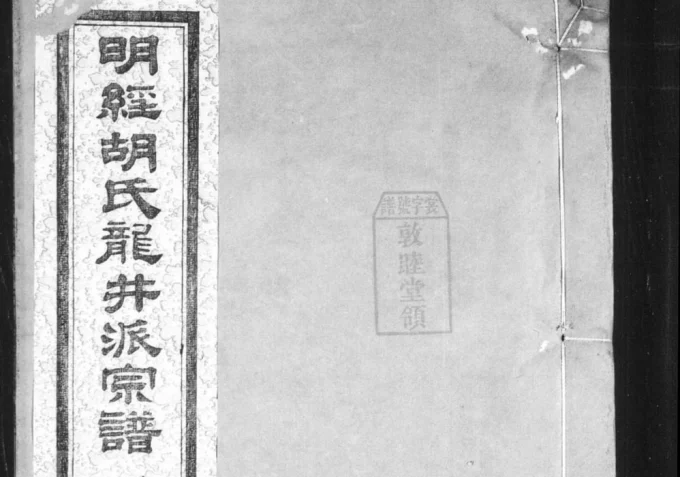 明經胡氏龍井派宗譜
字號譜
敦睦堂領